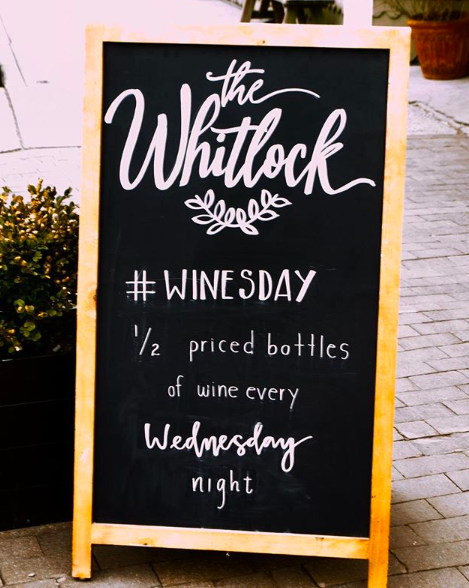 the
Whitlock
# WINESDAY
1/2 priced bottles
of wine every
Wednesday
night